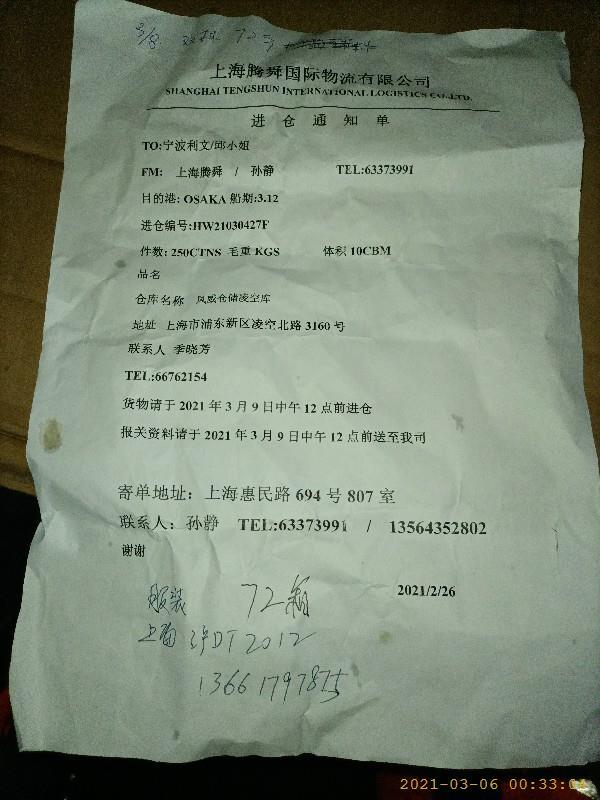 3/8 72
上海腾舜国际物流有限公司
SHANGHAI TENGSHUN INTERNATIONAL LOGISTICS CO.,LTD.
进仓通知单
TO:宁波利文/邱小姐
FM: 上海腾舜 / 孙静 TEL:63373991
目的港: OSAKA 船期:3.12
进仓编号:HW21030427F
件数: 250CTNS 毛重 KGS 体积 10CBM
品名
仓库名称 风威仓储凌空库
地址 上海市浦东新区凌空北路 3160 号
联系人 季晓芳
TEL:66762154
货物请于 2021 年 3 月 9 日中午 12 点前进仓
报关资料请于 2021 年 3 月 9 日中午 12 点前送至我司
寄单地址: 上海惠民路 694 号 807 室
联系人: 孙静 TEL:63373991 / 13564352802
谢谢
2021/2/26
服装 72箱
上海 沪DT2012
13661797875
2021-03-06 00:33:04